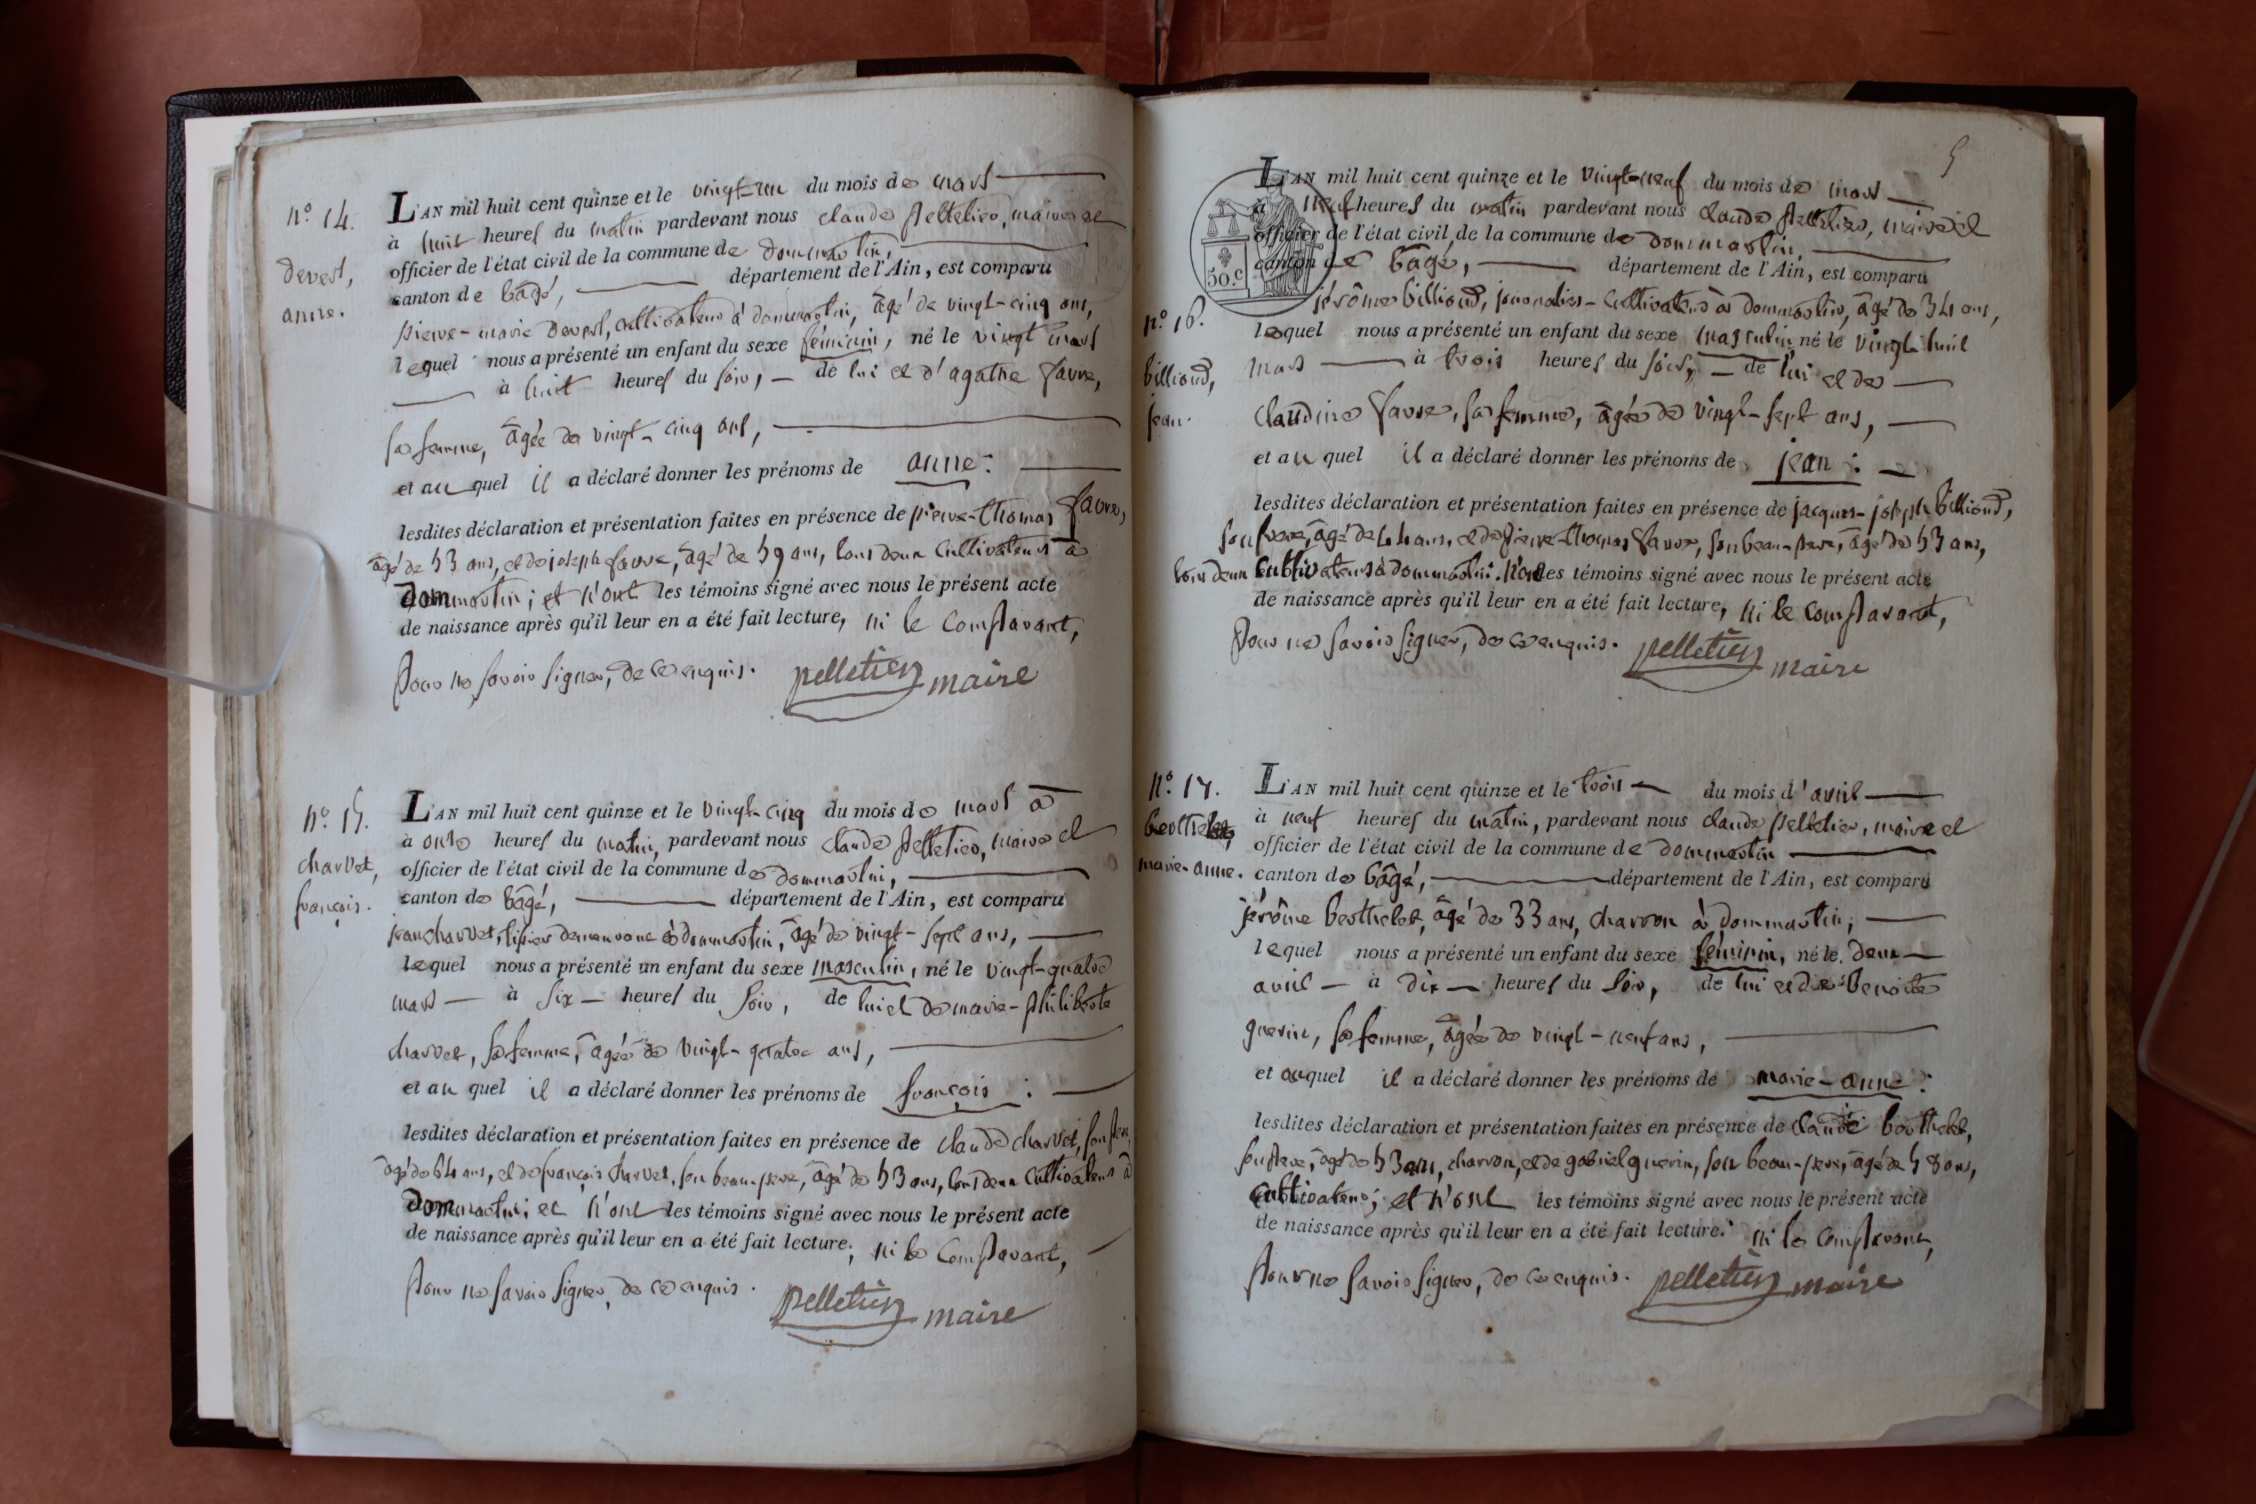 n.º 14.
devest,
anne.
L'AN mil huit cent quinze et le vingt-un du mois de mars
à huit heures du matin pardevant nous claude pelletier, maire et
officier de l'état civil de la commune de dommartin,
canton de bâgé, département de l'Ain, est comparu
pierre-marie devest, cultivateur à dommartin, âgé de vingt-cinq ans,
lequel nous a présenté un enfant du sexe féminin, né le vingt mars
à huit heures du soir, de lui et d'agathe favre,
sa femme, âgée de vingt-cinq ans,
et au quel il a déclaré donner les prénoms de anne :
lesdites déclaration et présentation faites en présence de pierre-thomas favre,
âgé de 53 ans, et de joseph favre, âgé de 59 ans, tous deux cultivateurs à
dommartin ; et n'ont les témoins signé avec nous le présent acte
de naissance après qu'il leur en a été fait lecture, ni le comparant,
pour ne savoir signer, de ce enquis. pelletier maire
n.º 15.
charvet,
françois.
L'AN mil huit cent quinze et le vingt-cinq du mois de mars à
à onze heures du matin, pardevant nous claude pelletier, maire et
officier de l'état civil de la commune de dommartin,
canton de bâgé, département de l'Ain, est comparu
jean charvet, tisier demeurant à dommartin, âgé de vingt-sept ans,
lequel nous a présenté un enfant du sexe masculin, né le vingt-quatre
mars à six heures du soir, de lui et de marie-philiberte
charvet, sa femme, âgée de vingt-quatre ans,
et au quel il a déclaré donner les prénoms de françois :
lesdites déclaration et présentation faites en présence de claude charvet, son père,
âgé de 64 ans, et de françois charvet, son beau-père, âgé de 53 ans, tous deux cultivateurs à
dommartin ; et n'ont les témoins signé avec nous le présent acte
de naissance après qu'il leur en a été fait lecture ; ni le comparant,
pour ne savoir signer, de ce enquis. pelletier maire
5
50.c
n.º 16.
billioud,
jean.
L'AN mil huit cent quinze et le vingt-neuf du mois de mars
à neuf heures du matin pardevant nous claude pelletier, maire et
officier de l'état civil de la commune de dommartin,
canton de bâgé, département de l'Ain, est comparu
jérôme billioud, journalier-cultivateur à dommartin, âgé de 34 ans,
lequel nous a présenté un enfant du sexe masculin né le vingt-huit
mars à trois heures du soir, de lui et de
claudine favre, sa femme, âgée de vingt-sept ans,
et au quel il a déclaré donner les prénoms de jean :
lesdites déclaration et présentation faites en présence de jacques-joseph billioud,
son frère, âgé de 44 ans, et de pierre-thomas favre, son beau-père, âgé de 53 ans,
tous deux cultivateurs à dommartin. N'ont les témoins signé avec nous le présent acte
de naissance après qu'il leur en a été fait lecture, ni le comparant,
pour ne savoir signer, de ce enquis. pelletier maire
n.º 17.
berthelet,
marie-anne.
L'AN mil huit cent quinze et le trois du mois d'avril
à neuf heures du matin, pardevant nous claude pelletier, maire et
officier de l'état civil de la commune de dommartin
canton de bâgé, département de l'Ain, est comparu
jérôme berthelet, âgé de 33 ans, charron à dommartin,
lequel nous a présenté un enfant du sexe féminin, né le deux
avril à dix heures du soir, de lui et de Benoite
guerin, sa femme, âgée de vingt-neuf ans,
et auquel il a déclaré donner les prénoms de marie-anne :
lesdites déclaration et présentation faites en présence de claude berthelet,
son père, âgé de 53 ans, charron, et de gabriel guerin, son beau-père, âgé de 58 ans,
cultivateur ; et n'ont les témoins signé avec nous le présent acte
de naissance après qu'il leur en a été fait lecture. ni le comparant,
pour ne savoir signer, de ce enquis. pelletier maire